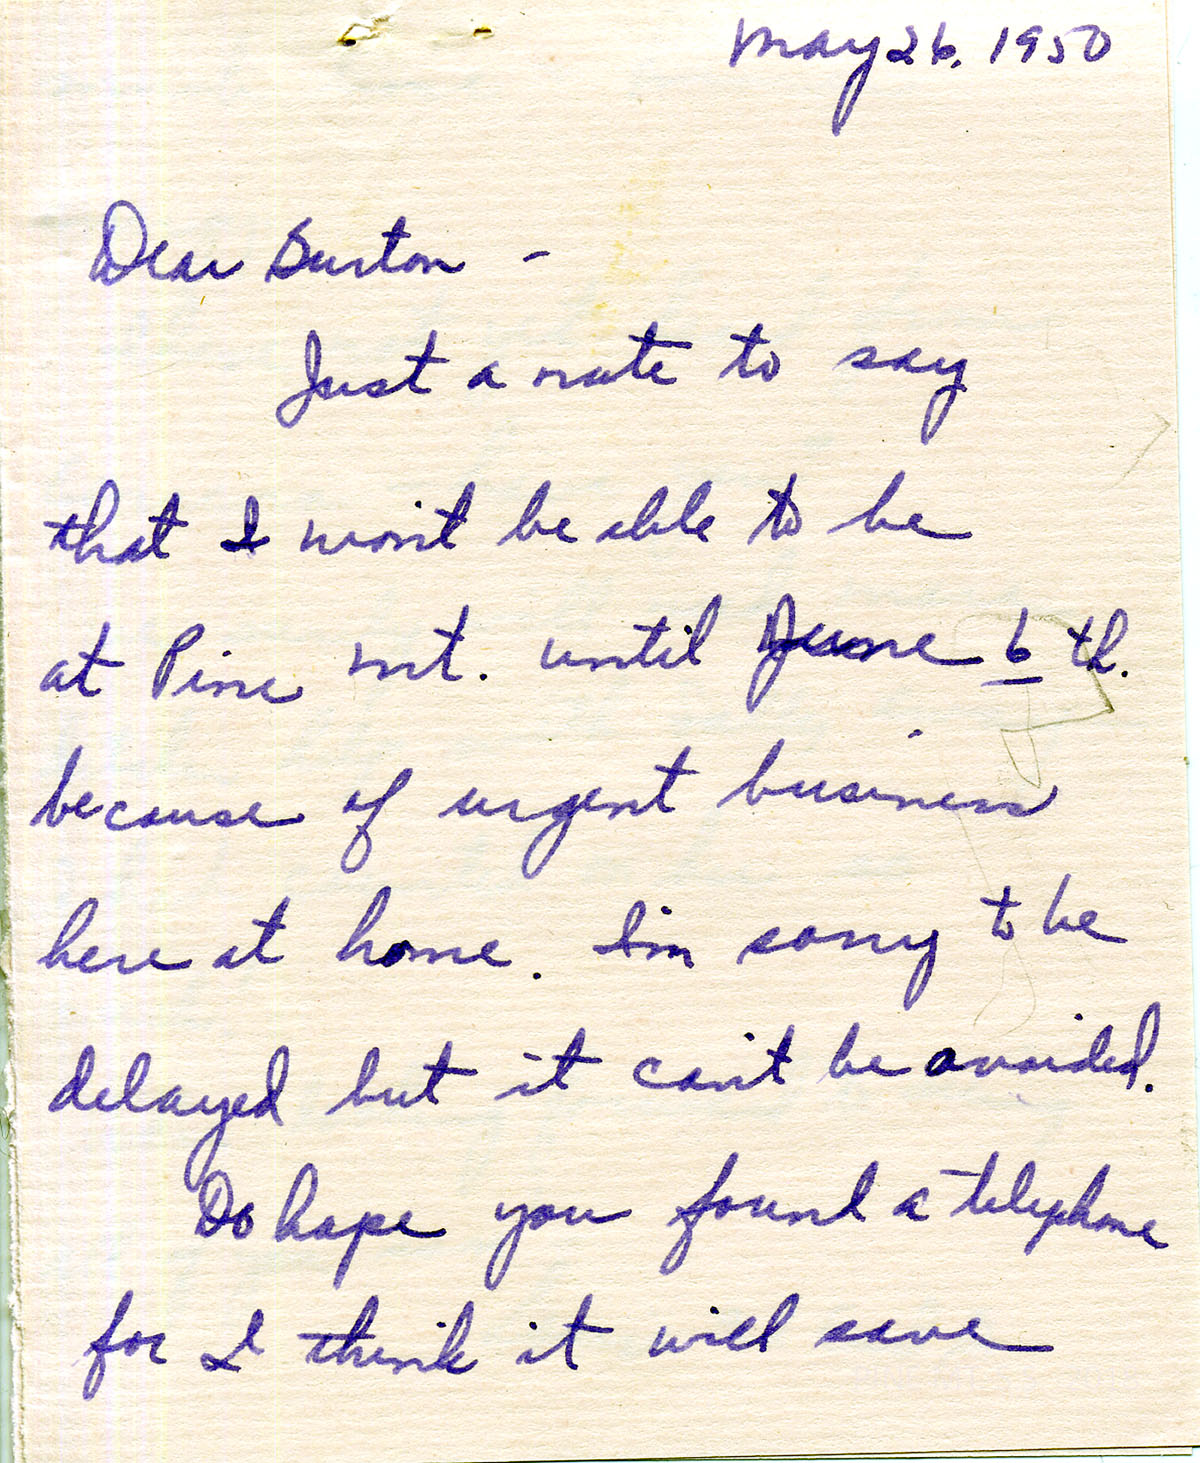 May 26, 1950
Dear Burton -
Just a note to say
that I won't be able to be
at Pine Mt. until June 6th.
because of urgent business
here at home. I'm sorry to be
delayed but it can't be avoided.
Do hope you found a telephone
for I think it will save